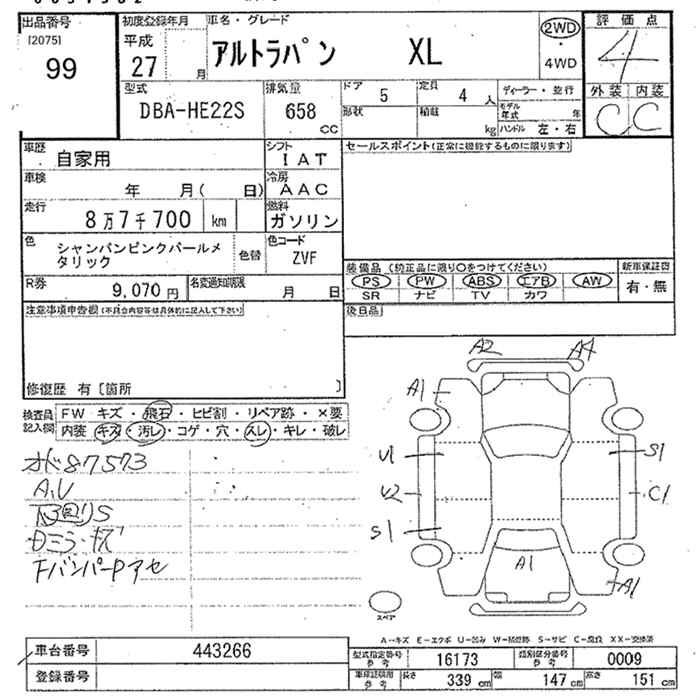 出品番号
[2075]
99
初度登録年月
平成
27
月
車名・グレード
アルトラパン XL
2WD
・
4WD
評価点
4
外装 内装
C C
型式
DBA-HE22S
排気量
658
CC
ドア 5
定員 4 人
形状
積載 kg
ディーラー・並行
モデル年式 年
ハンドル 左・右
車歴 自家用
シフト
IAT
車検 年 月( 日)
冷房
AAC
走行 8万7千700 km
燃料
ガソリン
色 シャンパンピンクパールメ
タリック
色替
色コード
ZVF
R券 9,070 円
名変通知期限 月 日
セールスポイント(正常に機能するものに限ります)
装備品 (純正品に限り○をつけてください)
PS PW ABS エアB AW
SR ナビ TV カワ
新車保証書
有・無
後日品
注意事項申告欄(不具合内容等は具体的に記入して下さい)
修復歴 有〔箇所 〕
検査員
記入欄
FW キズ・飛石・ヒビ割・リペア跡・×要
内装 キズ・汚レ・コゲ・穴・スレ・キレ・破レ
87573
A.U
下回りS
Fバンパーアセ
A2
A4
A1
U1
S1
U2
C1
S1
A1
A1
スペア
A-キズ E-エクボ U-凹み W-補修跡 S-サビ C-腐食 XX-交換済
車台番号 443266
登録番号
型式指定番号
参考
16173
類別区分番号
参考
0009
車庫証明用
参考
長さ 339 cm
幅 147 cm
高さ 151 cm